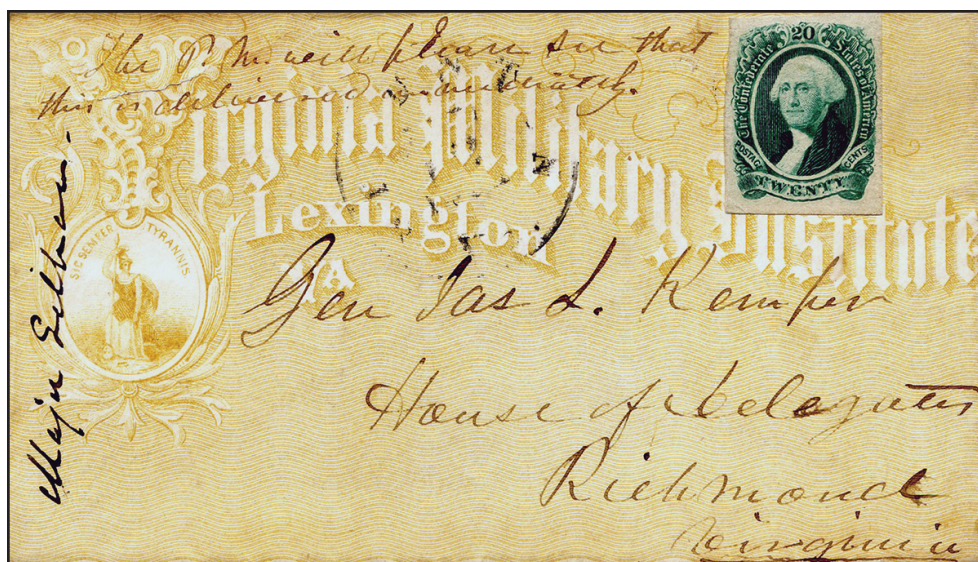 The P. M. will please see that
this is delivered immediately.
Virginia Military Institute
Lexington
VA
SIC SEMPER TYRANNIS
20
The Confederate States of America
POSTAGE CENTS
TWENTY
Gen Jas L. Kemper
House of Delegates
Richmond
Virginia
Major